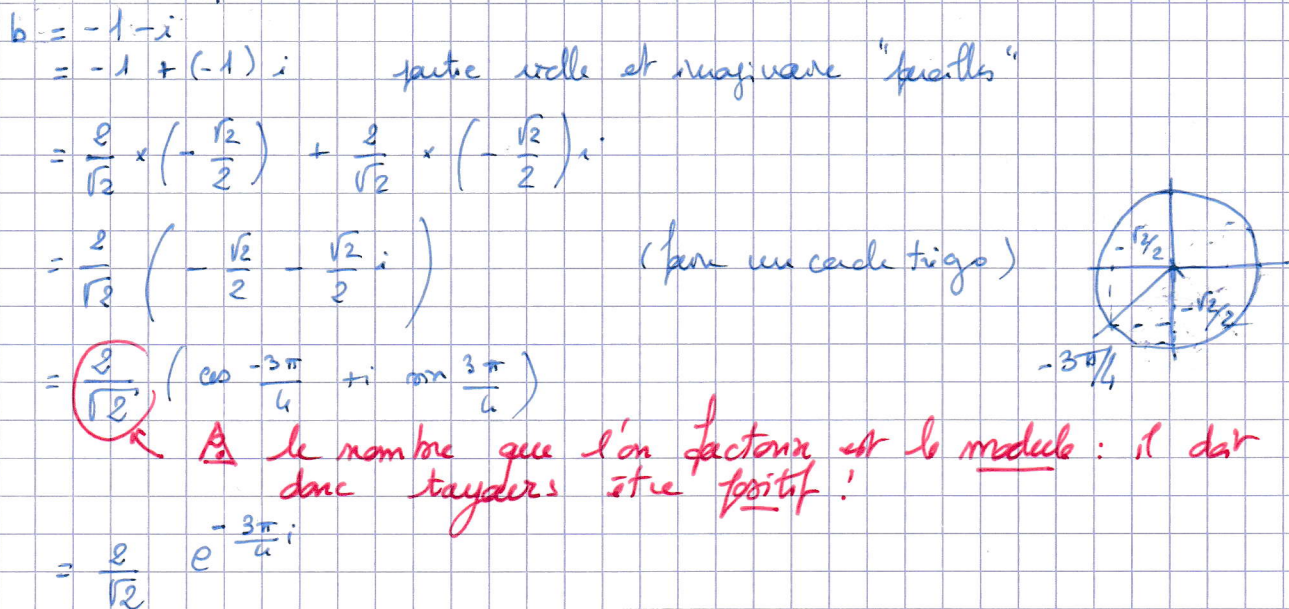 b = -1 - i
= -1 + (-1) i partie réelle et imaginaire "pareilles"
= 2/√2 × (- √2/2) + 2/√2 × (- √2/2) i
= 2/√2 ( - √2/2 - √2/2 i ) (faire un cercle trigo)
-√2/2
-√2/2
-3π/4
= 2/√2 ( cos -3π/4 + i sin 3π/4 )
⚠ le nombre que l'on factorise est le module : il doit
donc toujours être positif !
= 2/√2 e^(- 3π/4 i)